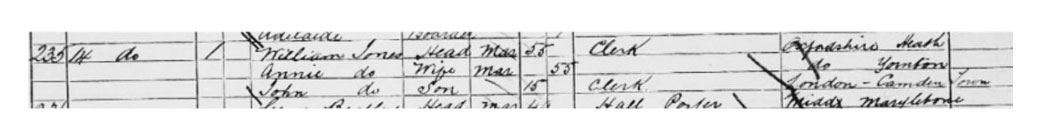 Adelaide Boarder
235 14 do 1 William Jones Head Mar 55 Clerk Oxfordshire Heath
Annie do Wife Mar 55 do Yornton
John do Son 15 Clerk London - Camden Town
Head Mar Hall Porter Middx Marylebone